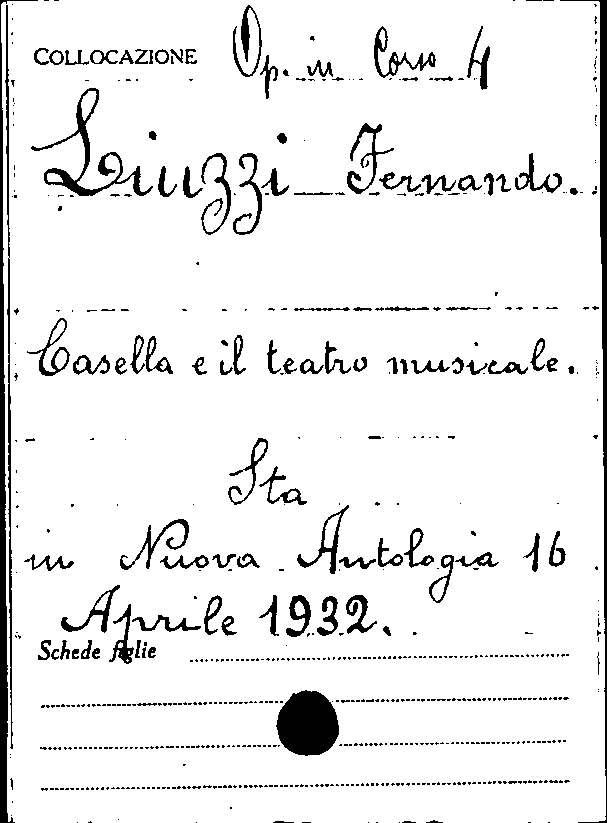 COLLOCAZIONE Op. in Corso 4
Liuzzi Fernando.
Casella e il teatro musicale.
Sta
in Nuova Antologia 16
Aprile 1932.
Schede figlie